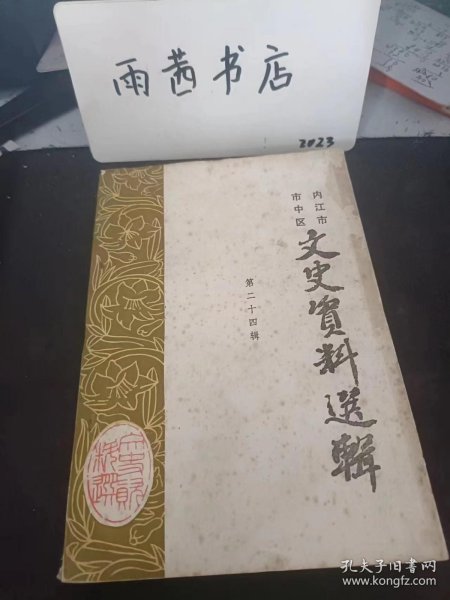 雨茜书店
2023
内江市
市中区
文史资料選輯
第二十四辑
孔夫子旧书网
www.kongfz.com